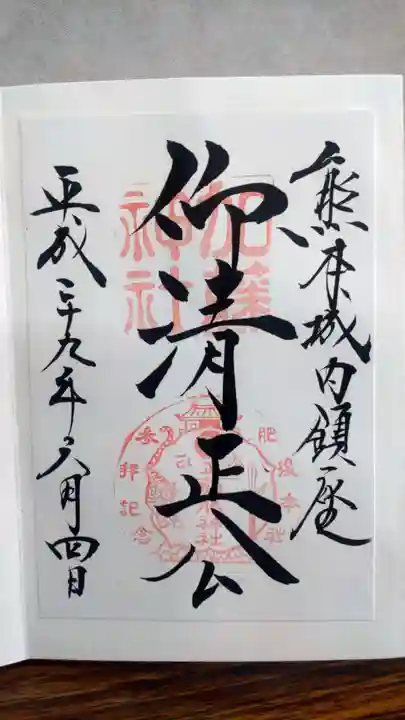 熊本城内鎮座
仰清正公
加藤
神社
平成二十九年六月四日
肥後本社
参拝記念